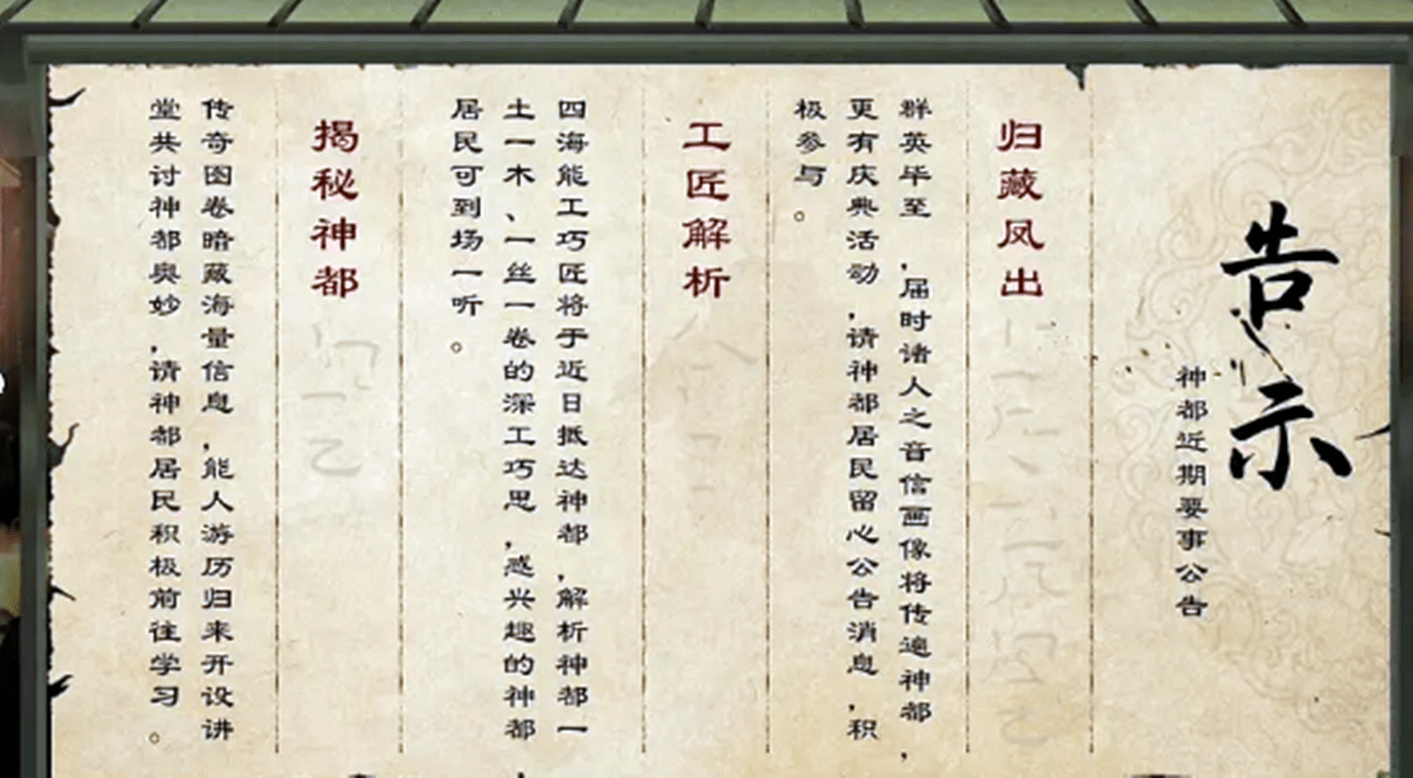 告示
神都近期要事公告
归藏凤出
群英毕至，届时诸人之音信画像将传遍神都，
更有庆典活动，请神都居民留心公告消息，积
极参与。
工匠解析
四海能工巧匠将于近日抵达神都，解析神都一
土一木、一丝一卷的深工巧思，感兴趣的神都
居民可到场一听。
揭秘神都
传奇图卷暗藏海量信息，能人游历归来开设讲
堂共讨神都奥妙，请神都居民积极前往学习。